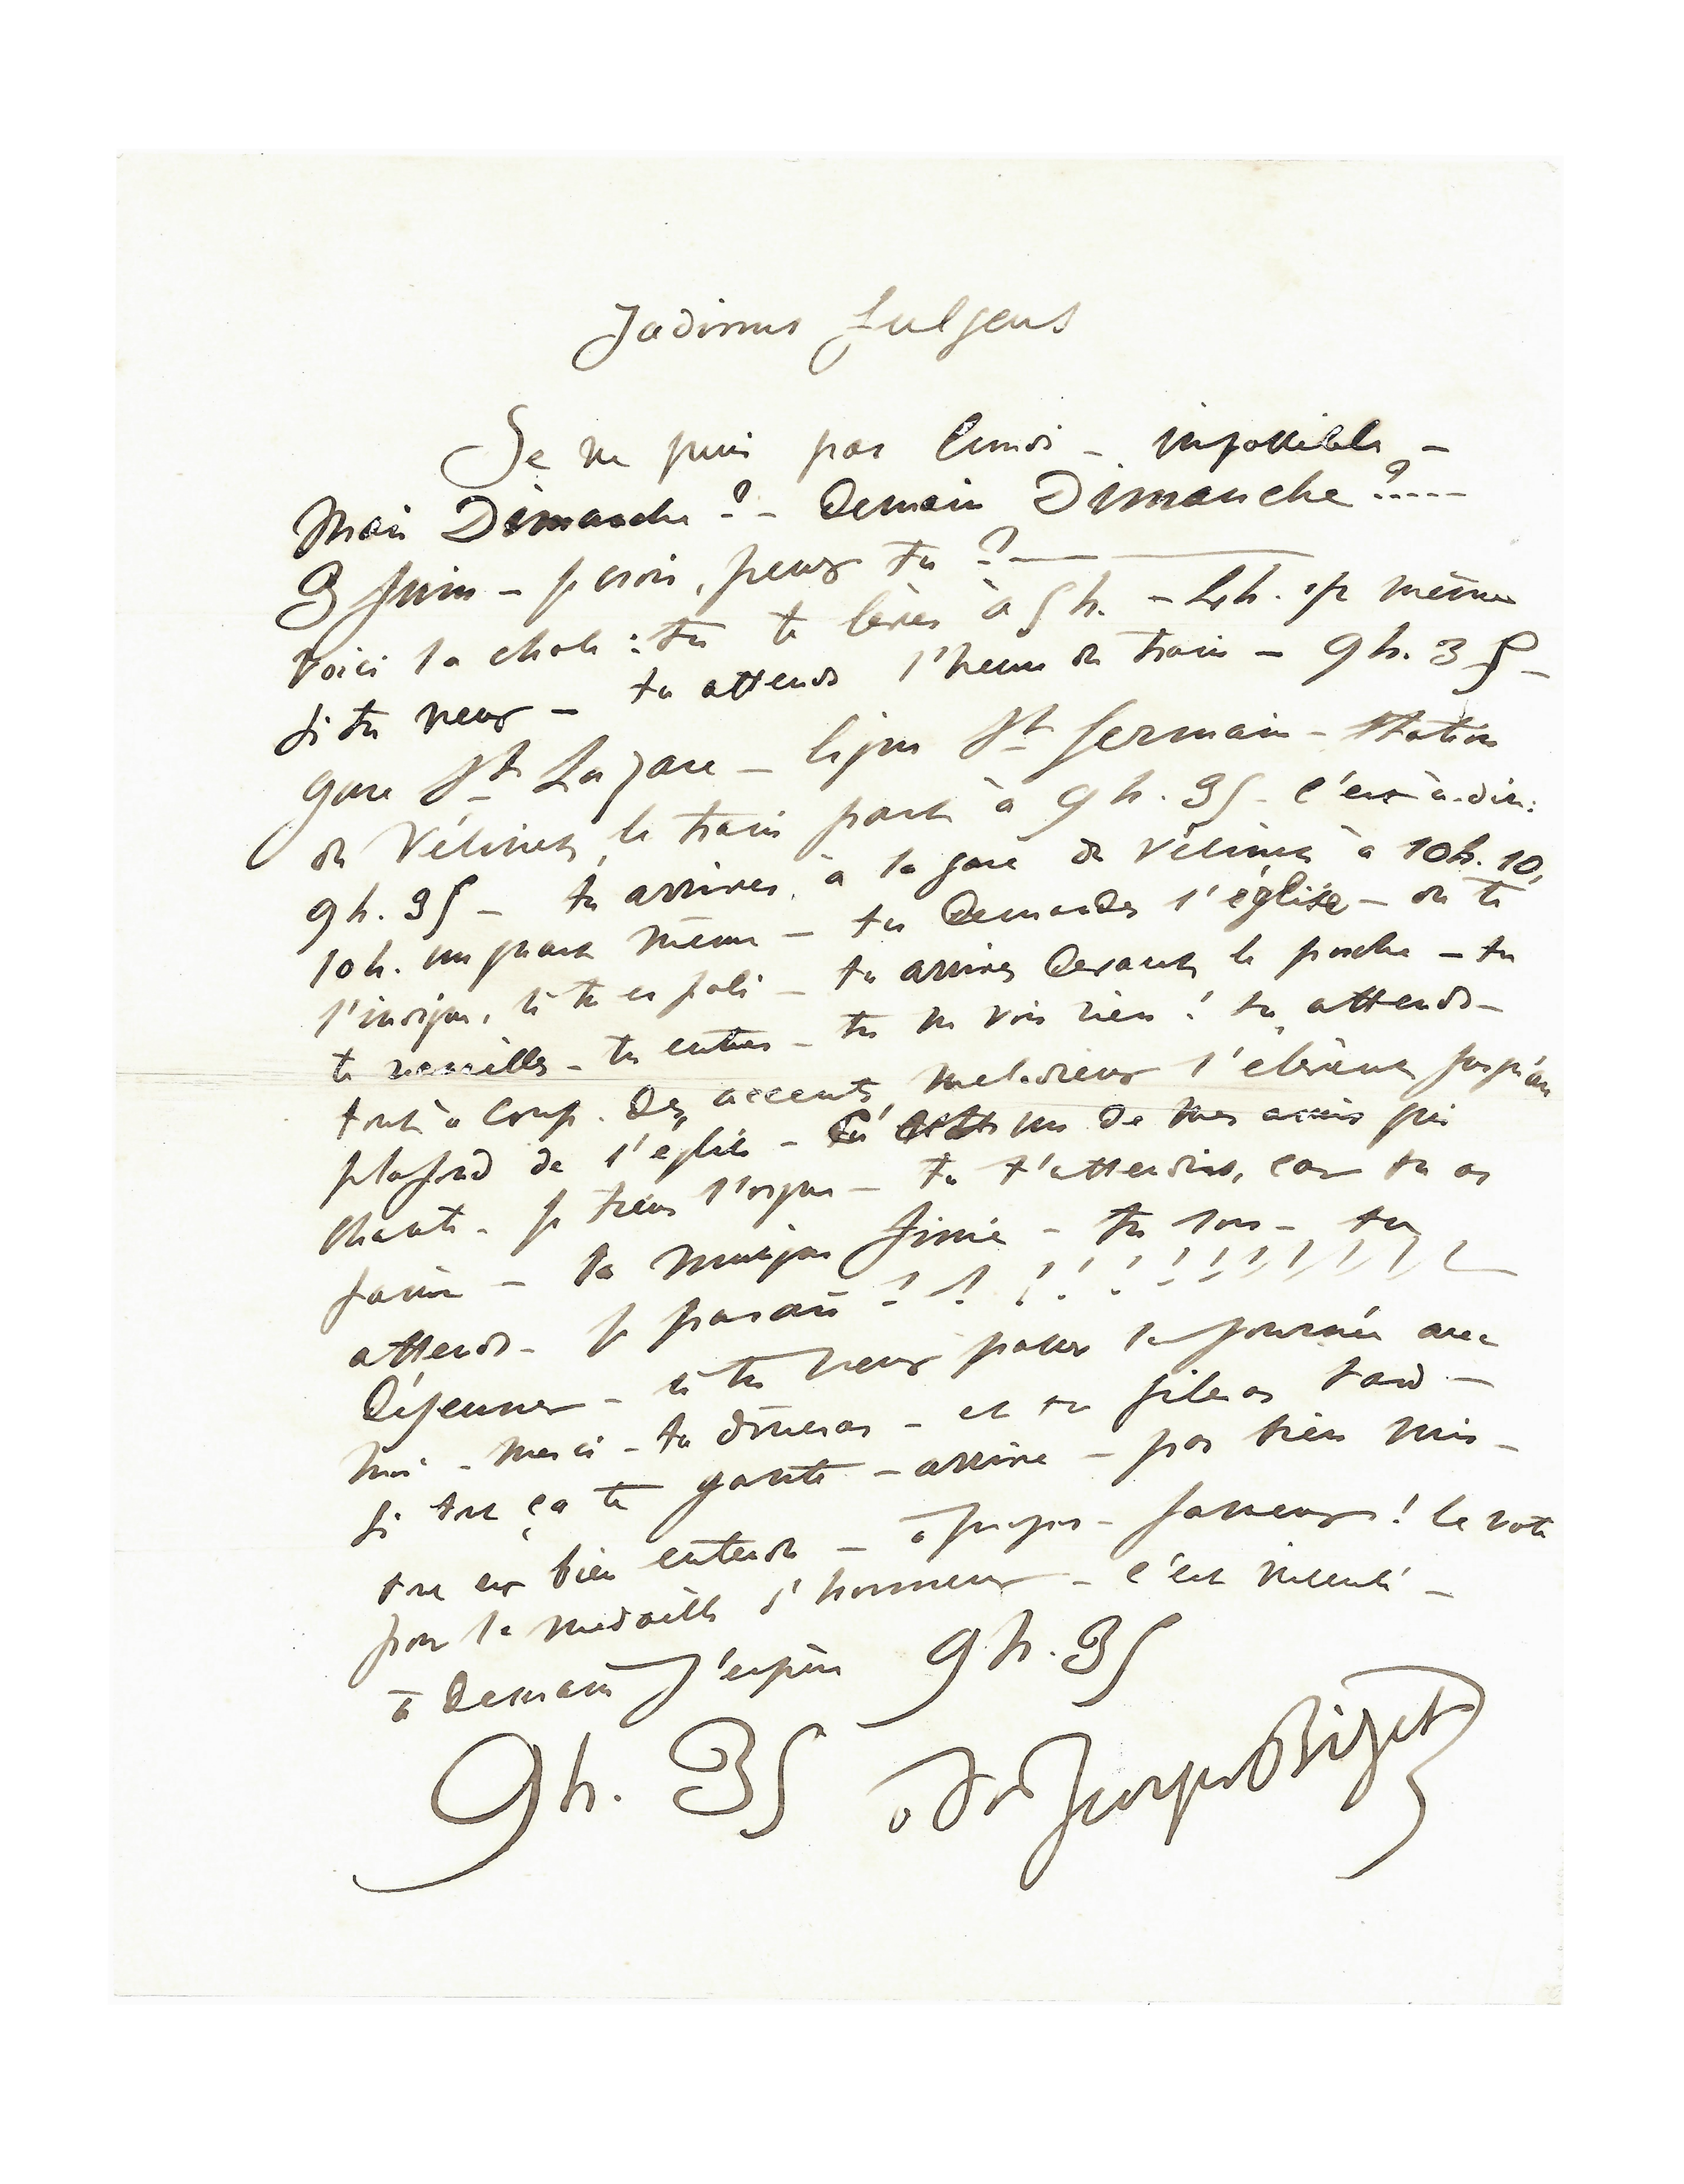 Jadinus fulgens
Je ne puis pas lundi – impossible –
Mais Dimanche ? – Demain Dimanche ?.....
3 Juin – je crois, peux tu ? —
Voici la chose : tu te lèves à 5 h. – 4 h. si même
si tu veux – tu attends l'heure du train – 9 h. 35 –
gare St Lazare – ligne St Germain – station
du Vésinet, le train part à 9 h. 35 – c'est-à-dire :
9 h. 35 – tu arrives à la gare du Vésinet à 10 h. 10,
10 h. un quart même – tu demandes l'église – on te
l'indique, si tu es poli – tu arrives devant le porche – tu
te – tu entres – tu ne vois rien ! tu attends –
tout à coup. Des accents mélodieux s'élèvent jusqu'au
plafond de l'église – C'est un de mes amis qui
chante – je tiens l'orgue – tu t'attendris, car tu as
faim – la musique finie – tu sors – tu
attends – je parais ! ! ! ! ! ! ! ! ! ! ! ! !
Déjeuner – si tu veux passer la journée avec
moi – merci – tu dîneras – et tu fileras tard –
si tout ça te gante – arrive – pas bien mis –
tout est bien entendu – à propos – farceur ! le vote
pour la médaille d'honneur – c'est insensé –
à Demain j'espère 9 h. 35
9 h. 35 à toi Georges Bizet